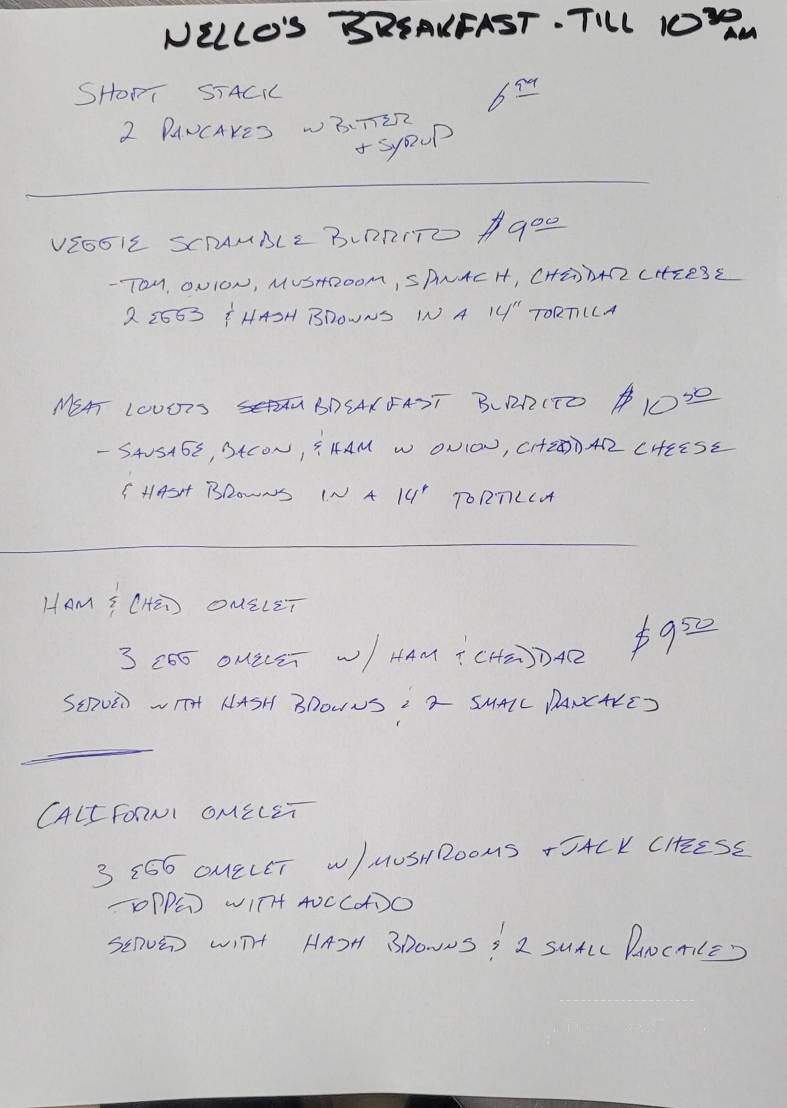 NELLO'S BREAKFAST · TILL 10³⁰ AM
SHORT STACK 6⁹⁹
2 PANCAKES W BUTTER
+ SYRUP
VEGGIE SCRAMBLE BURRITO $9⁰⁰
- TOM, ONION, MUSHROOM, SPINACH, CHEDDAR CHEESE
2 EGGS & HASH BROWNS IN A 14" TORTILLA
MEAT LOVERS BREAKFAST BURRITO $10⁵⁰
- SAUSAGE, BACON, & HAM W ONION, CHEDDAR CHEESE
& HASH BROWNS IN A 14" TORTILLA
HAM & CHED OMELET
3 EGG OMELET W/ HAM & CHEDDAR $9⁵⁰
SERVED WITH HASH BROWNS & 2 SMALL PANCAKES
CALIFORNI OMELET
3 EGG OMELET W/ MUSHROOMS + JACK CHEESE
TOPPED WITH AVOCADO
SERVED WITH HASH BROWNS & 2 SMALL PANCAKES